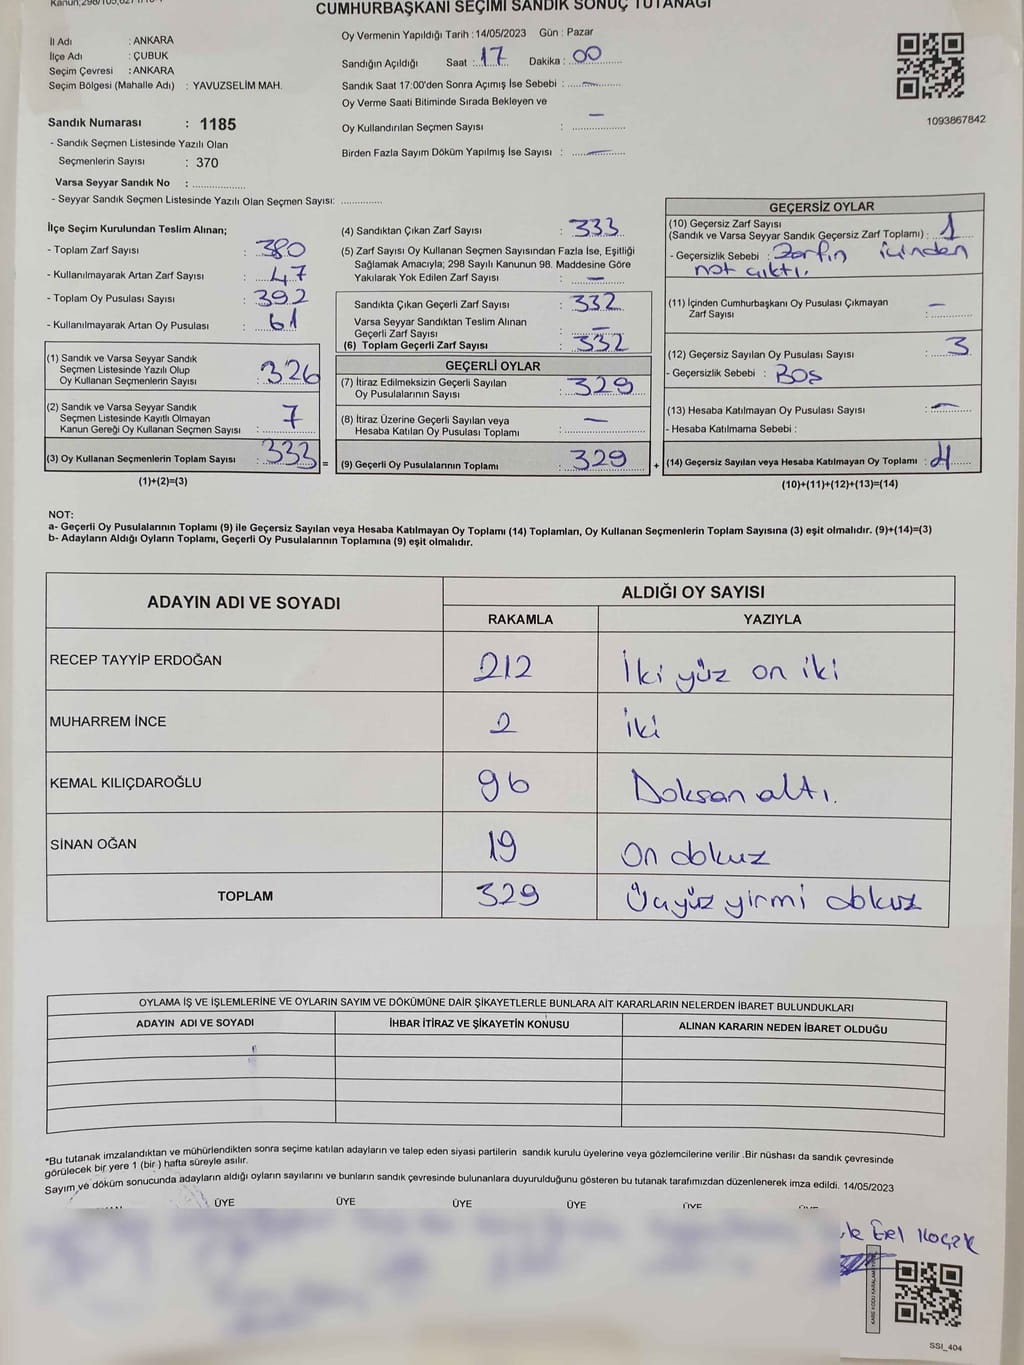 CUMHURBAŞKANI SEÇİMİ SANDIK SONUÇ TUTANAĞI
İl Adı : ANKARA
İlçe Adı : ÇUBUK
Seçim Çevresi : ANKARA
Seçim Bölgesi (Mahalle Adı) : YAVUZSELİM MAH.
Sandık Numarası : 1185
- Sandık Seçmen Listesinde Yazılı Olan
Seçmenlerin Sayısı : 370
Varsa Seyyar Sandık No :
- Seyyar Sandık Seçmen Listesinde Yazılı Olan Seçmen Sayısı:
Oy Vermenin Yapıldığı Tarih : 14/05/2023 Gün : Pazar
Sandığın Açıldığı Saat : 17 Dakika : 00
Sandık Saat 17:00'den Sonra Açımış İse Sebebi : —
Oy Verme Saati Bitiminde Sırada Bekleyen ve
Oy Kullandırılan Seçmen Sayısı : —
Birden Fazla Sayım Döküm Yapılmış İse Sayısı : —
1093867842
İlçe Seçim Kurulundan Teslim Alınan;
- Toplam Zarf Sayısı : 380
- Kullanılmayarak Artan Zarf Sayısı : 47
- Toplam Oy Pusulası Sayısı : 392
- Kullanılmayarak Artan Oy Pusulası : 61
(1) Sandık ve Varsa Seyyar Sandık
Seçmen Listesinde Yazılı Olup
Oy Kullanan Seçmenlerin Sayısı : 326
(2) Sandık ve Varsa Seyyar Sandık
Seçmen Listesinde Kayıtlı Olmayan
Kanun Gereği Oy Kullanan Seçmen Sayısı : 7
(3) Oy Kullanan Seçmenlerin Toplam Sayısı : 333 =
(1)+(2)=(3)
(4) Sandıktan Çıkan Zarf Sayısı : 333
(5) Zarf Sayısı Oy Kullanan Seçmen Sayısından Fazla İse, Eşitliği
Sağlamak Amacıyla; 298 Sayılı Kanunun 98. Maddesine Göre
Yakılarak Yok Edilen Zarf Sayısı : —
Sandıkta Çıkan Geçerli Zarf Sayısı : 332
Varsa Seyyar Sandıktan Teslim Alınan
Geçerli Zarf Sayısı : —
(6) Toplam Geçerli Zarf Sayısı : 332
GEÇERLİ OYLAR
(7) İtiraz Edilmeksizin Geçerli Sayılan
Oy Pusulalarının Sayısı : 329
(8) İtiraz Üzerine Geçerli Sayılan veya
Hesaba Katılan Oy Pusulası Toplamı : —
(9) Geçerli Oy Pusulalarının Toplamı : 329 +
GEÇERSİZ OYLAR
(10) Geçersiz Zarf Sayısı
(Sandık ve Varsa Seyyar Sandık Geçersiz Zarf Toplamı) : 1
- Geçersizlik Sebebi : Zarfın içinden
not çıktı.
(11) İçinden Cumhurbaşkanı Oy Pusulası Çıkmayan
Zarf Sayısı : —
(12) Geçersiz Sayılan Oy Pusulası Sayısı : 3
- Geçersizlik Sebebi : BOŞ
(13) Hesaba Katılmayan Oy Pusulası Sayısı : —
- Hesaba Katılmama Sebebi :
(14) Geçersiz Sayılan veya Hesaba Katılmayan Oy Toplamı : 4
(10)+(11)+(12)+(13)=(14)
NOT:
a- Geçerli Oy Pusulalarının Toplamı (9) ile Geçersiz Sayılan veya Hesaba Katılmayan Oy Toplamı (14) Toplamları, Oy Kullanan Seçmenlerin Toplam Sayısına (3) eşit olmalıdır. (9)+(14)=(3)
b- Adayların Aldığı Oyların Toplamı, Geçerli Oy Pusulalarının Toplamına (9) eşit olmalıdır.
ADAYIN ADI VE SOYADI ALDIĞI OY SAYISI
RAKAMLA YAZIYLA
RECEP TAYYİP ERDOĞAN 212 İki yüz on iki
MUHARREM İNCE 2 iki
KEMAL KILIÇDAROĞLU 96 Doksan altı.
SİNAN OĞAN 19 On dokuz
TOPLAM 329 Üçyüz yirmi dokuz
OYLAMA İŞ VE İŞLEMLERİNE VE OYLARIN SAYIM VE DÖKÜMÜNE DAİR ŞİKAYETLERLE BUNLARA AİT KARARLARIN NELERDEN İBARET BULUNDUKLARI
ADAYIN ADI VE SOYADI İHBAR İTİRAZ VE ŞİKAYETİN KONUSU ALINAN KARARIN NEDEN İBARET OLDUĞU
*Bu tutanak imzalandıktan ve mühürlendikten sonra seçime katılan adayların ve talep eden siyasi partilerin sandık kurulu üyelerine veya gözlemcilerine verilir .Bir nüshası da sandık çevresinde
görülecek bir yere 1 (bir ) hafta süreyle asılır.
Sayım ve döküm sonucunda adayların aldığı oyların sayılarını ve bunların sandık çevresinde bulunanlara duyurulduğunu gösteren bu tutanak tarafımızdan düzenlenerek imza edildi. 14/05/2023
ÜYE ÜYE ÜYE ÜYE ÜYE
Erel Koçak
SSI_404